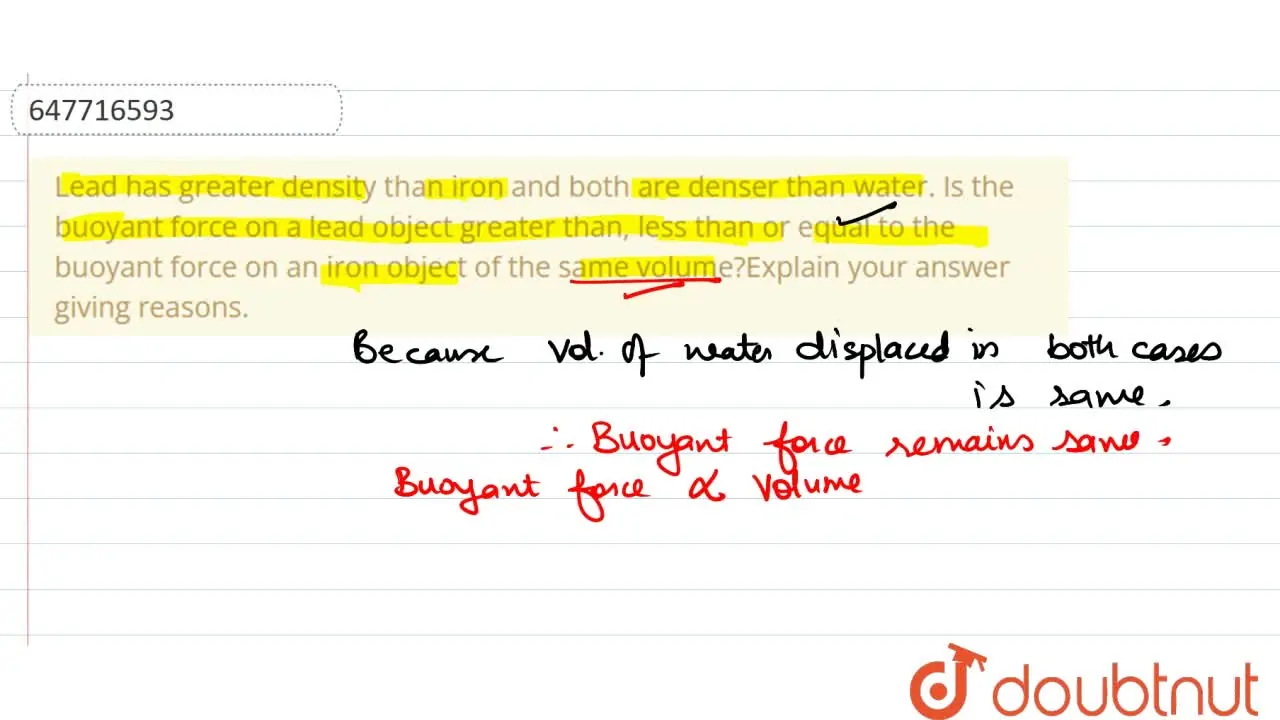 647716593
Lead has greater density than iron and both are denser than water. Is the
buoyant force on a lead object greater than, less than or equal to the
buoyant force on an iron object of the same volume?Explain your answer
giving reasons.
Because Vol. of water displaced in both cases
is same.
∴ Buoyant force remains same.
Buoyant force ∝ Volume
doubtnut